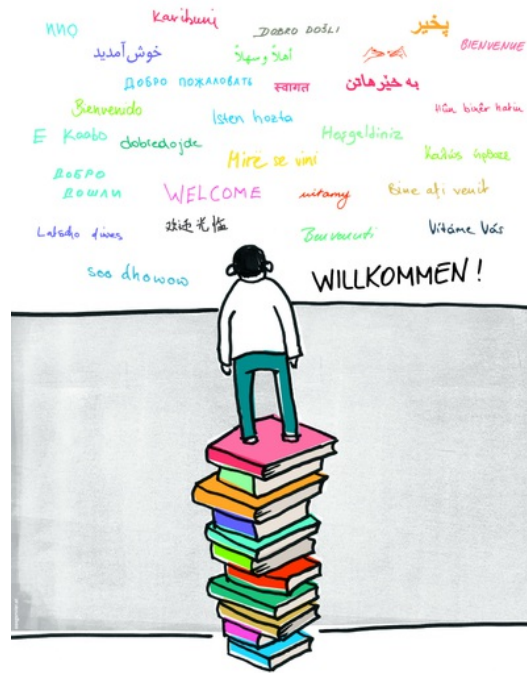 Karibuni
DOBRO DOŠLI
پخیر
BIENVENUE
خوش آمدید
أهلاً وسهلاً
ДОБРО ПОЖАЛОВАТЬ
स्वागत
به خێرهاتن
Bienvenido
Isten hozta
Hûn bixêr hatin
E Kaabo
dobredojde
Hoşgeldiniz
Mirë se vini
ДОБРО
ДОШЛИ
WELCOME
witamy
Bine aţi venit
欢迎光临
Benvenuti
Vítáme Vás
soo dhowow
WILLKOMMEN!